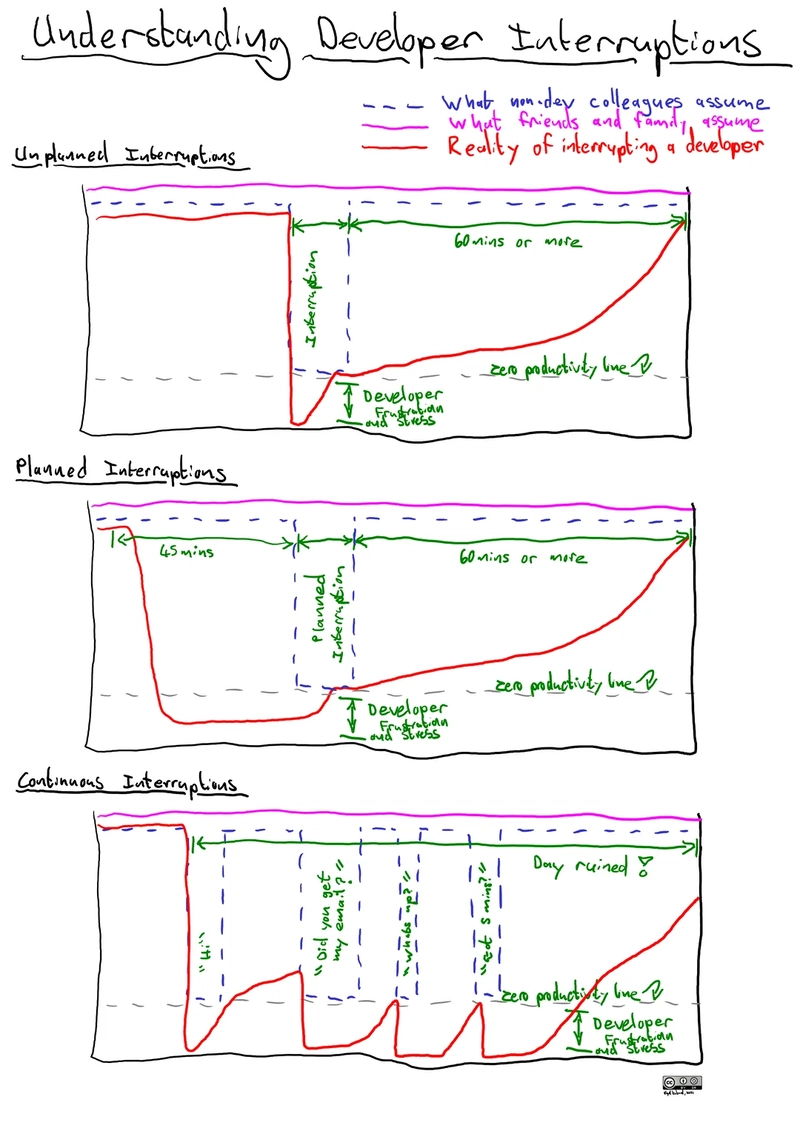 Understanding Developer Interruptions
What non-dev colleagues assume
What friends and family assume
Reality of interrupting a developer
Unplanned Interruptions
60mins or more
Interruption
zero productivity line
Developer
Frustration
and Stress
Planned Interruptions
45mins
60mins or more
Planned
Interruption
zero productivity line
Developer
Frustration
and Stress
Continuous Interruptions
Day ruined!
"Hi"
"Did you get
my email?"
"whats up?"
"Got 5 mins?"
zero productivity line
Developer
Frustration
and Stress
cc